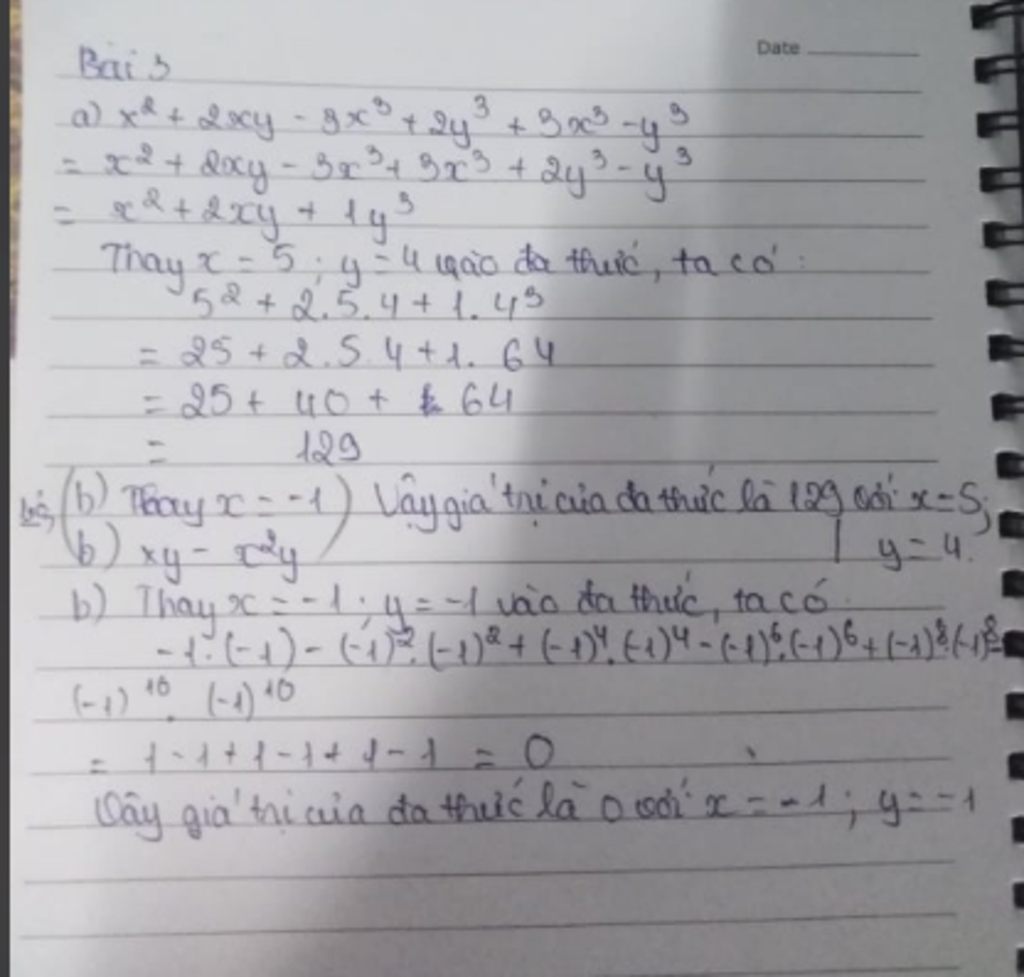 Date
Bài 3
a) x² + 2xy - 3x³ + 2y³ + 3x³ - y³
= x² + 2xy - 3x³ + 3x³ + 2y³ - y³
= x² + 2xy + 1y³
Thay x = 5 ; y = 4 vào đa thức, ta có :
5² + 2.5.4 + 1.4³
= 25 + 2.5.4 + 1.64
= 25 + 40 + 64
= 129
(b) Thay x = -1) Vậy giá trị của đa thức là 129 với x = 5;
b) xy - x²y y = 4.
b) Thay x = -1 ; y = -1 vào đa thức, ta có
-1.(-1) - (-1)².(-1)² + (-1)⁴.(-1)⁴ - (-1)⁶.(-1)⁶ + (-1)⁸.(-1)⁸ -
(-1)¹⁰. (-1)¹⁰
= 1 - 1 + 1 - 1 + 1 - 1 = 0
Vậy giá trị của đa thức là 0 với x = -1 ; y = -1